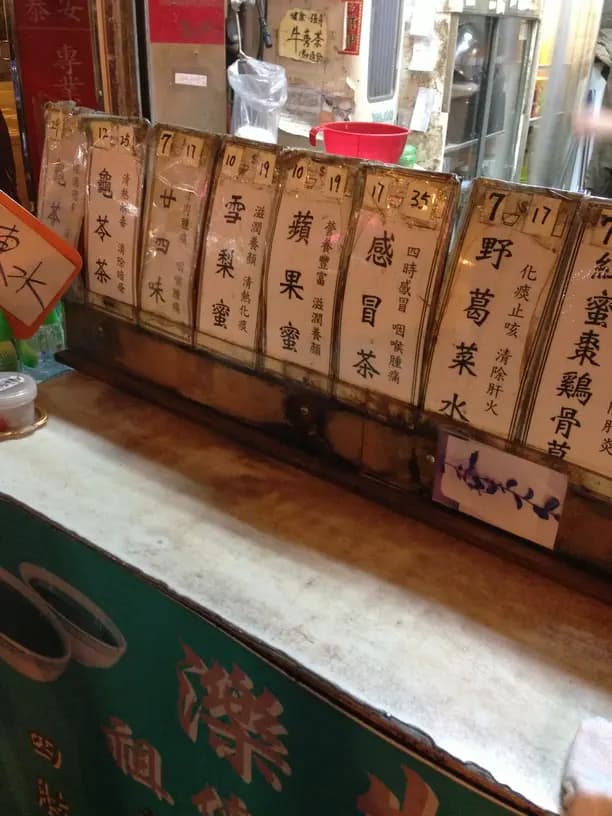 專業
牛蒡茶
12 25
龜苓茶
清除暗瘡
7 17
廿四味
咽喉腫痛
10 $ 19
雪梨蜜
滋潤養顏 清熱化痰
10 $ 19
蘋果蜜
營養豐富 滋潤養顏
17 35
感冒茶
四時感冒 咽喉腫痛
7 $ 17
野葛菜水
化痰止咳 清除肝火
7
紅蜜棗鷄骨草
肝炎
凍水
祖